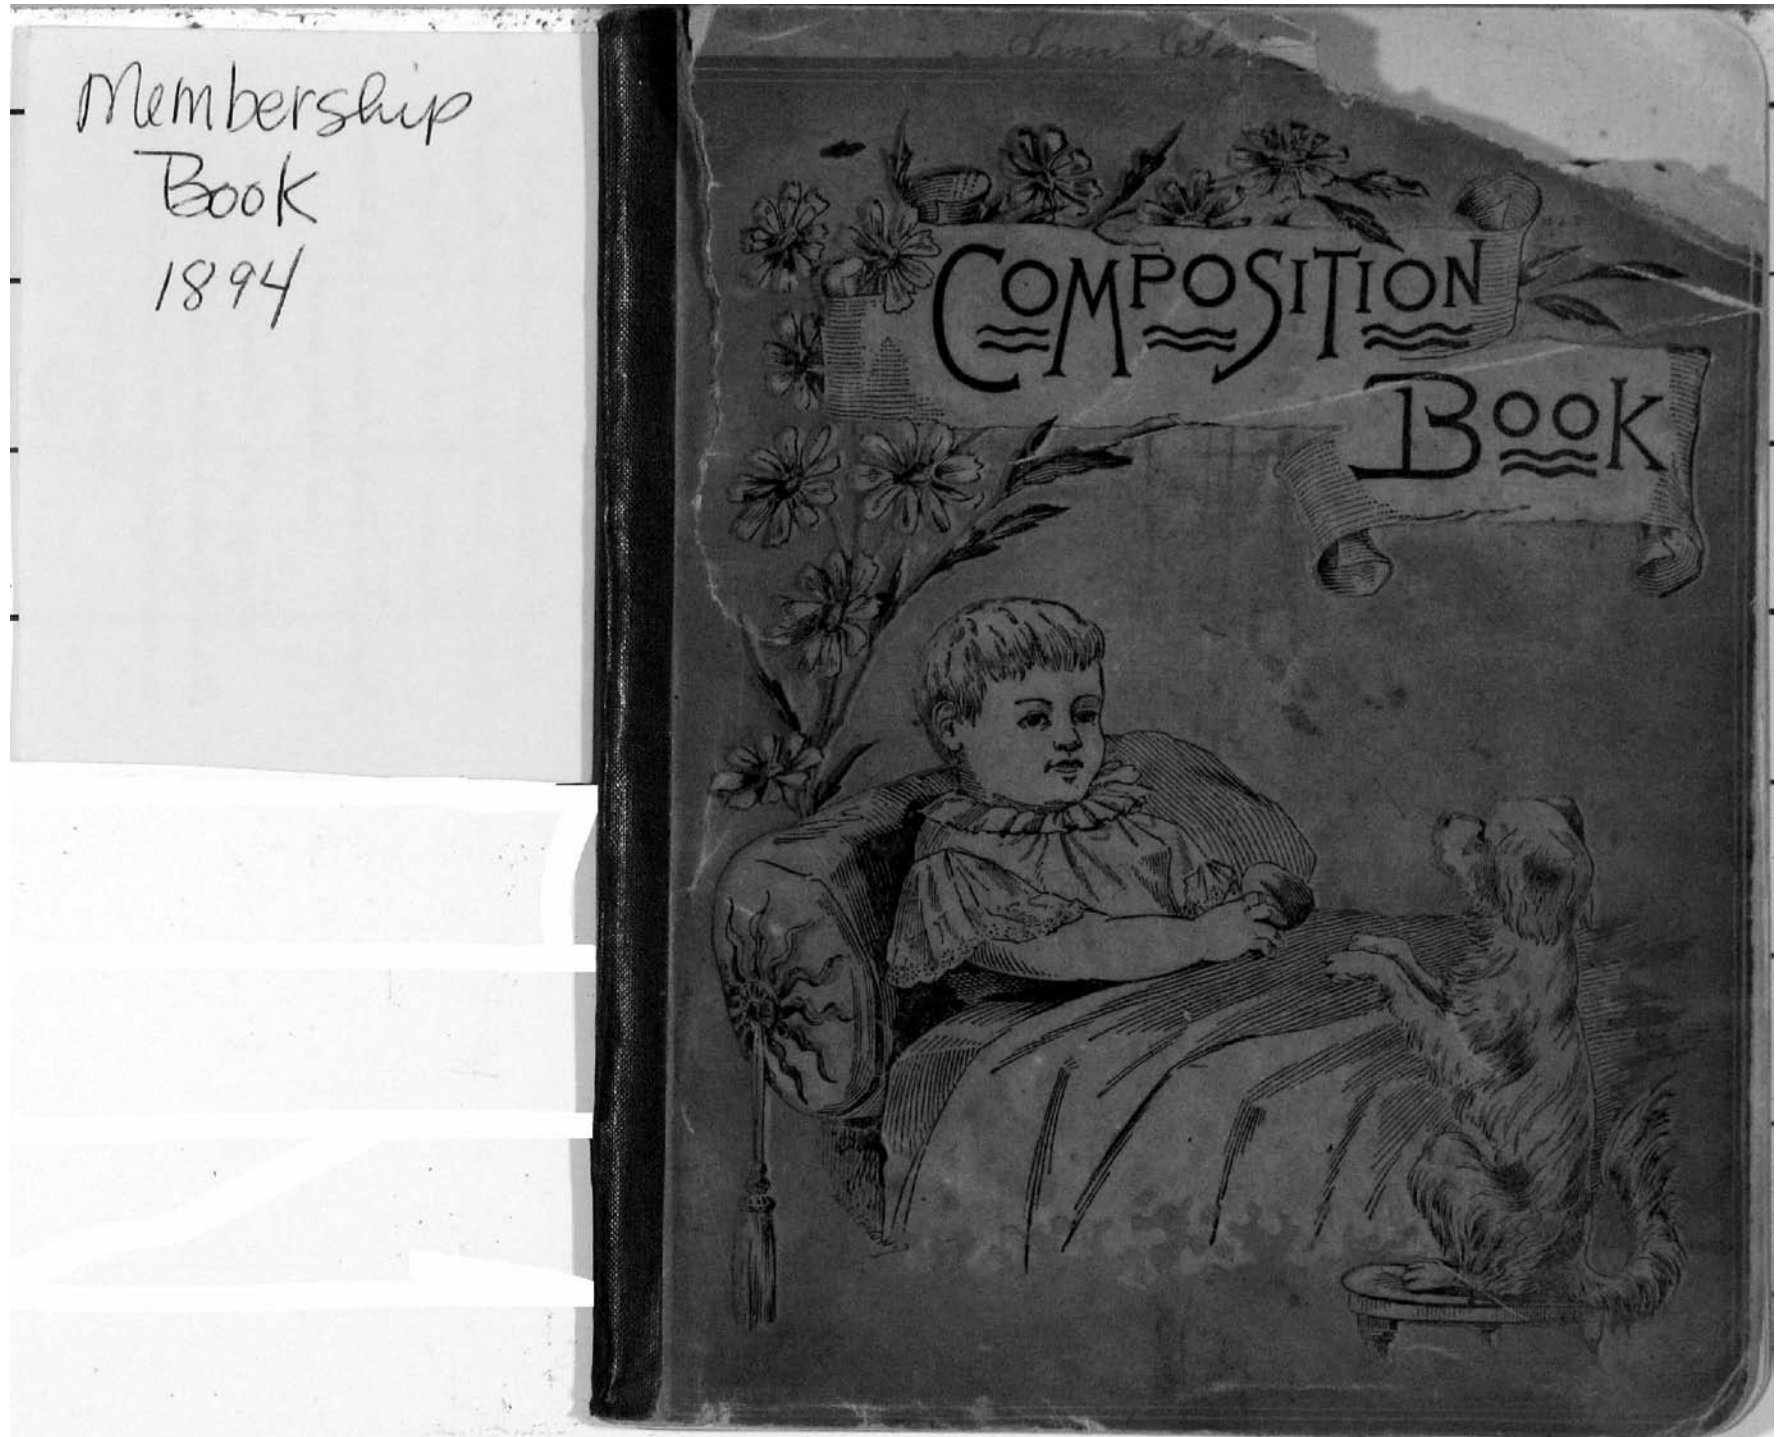 Membership
Book
1894
Sam
COMPOSITION
BOOK